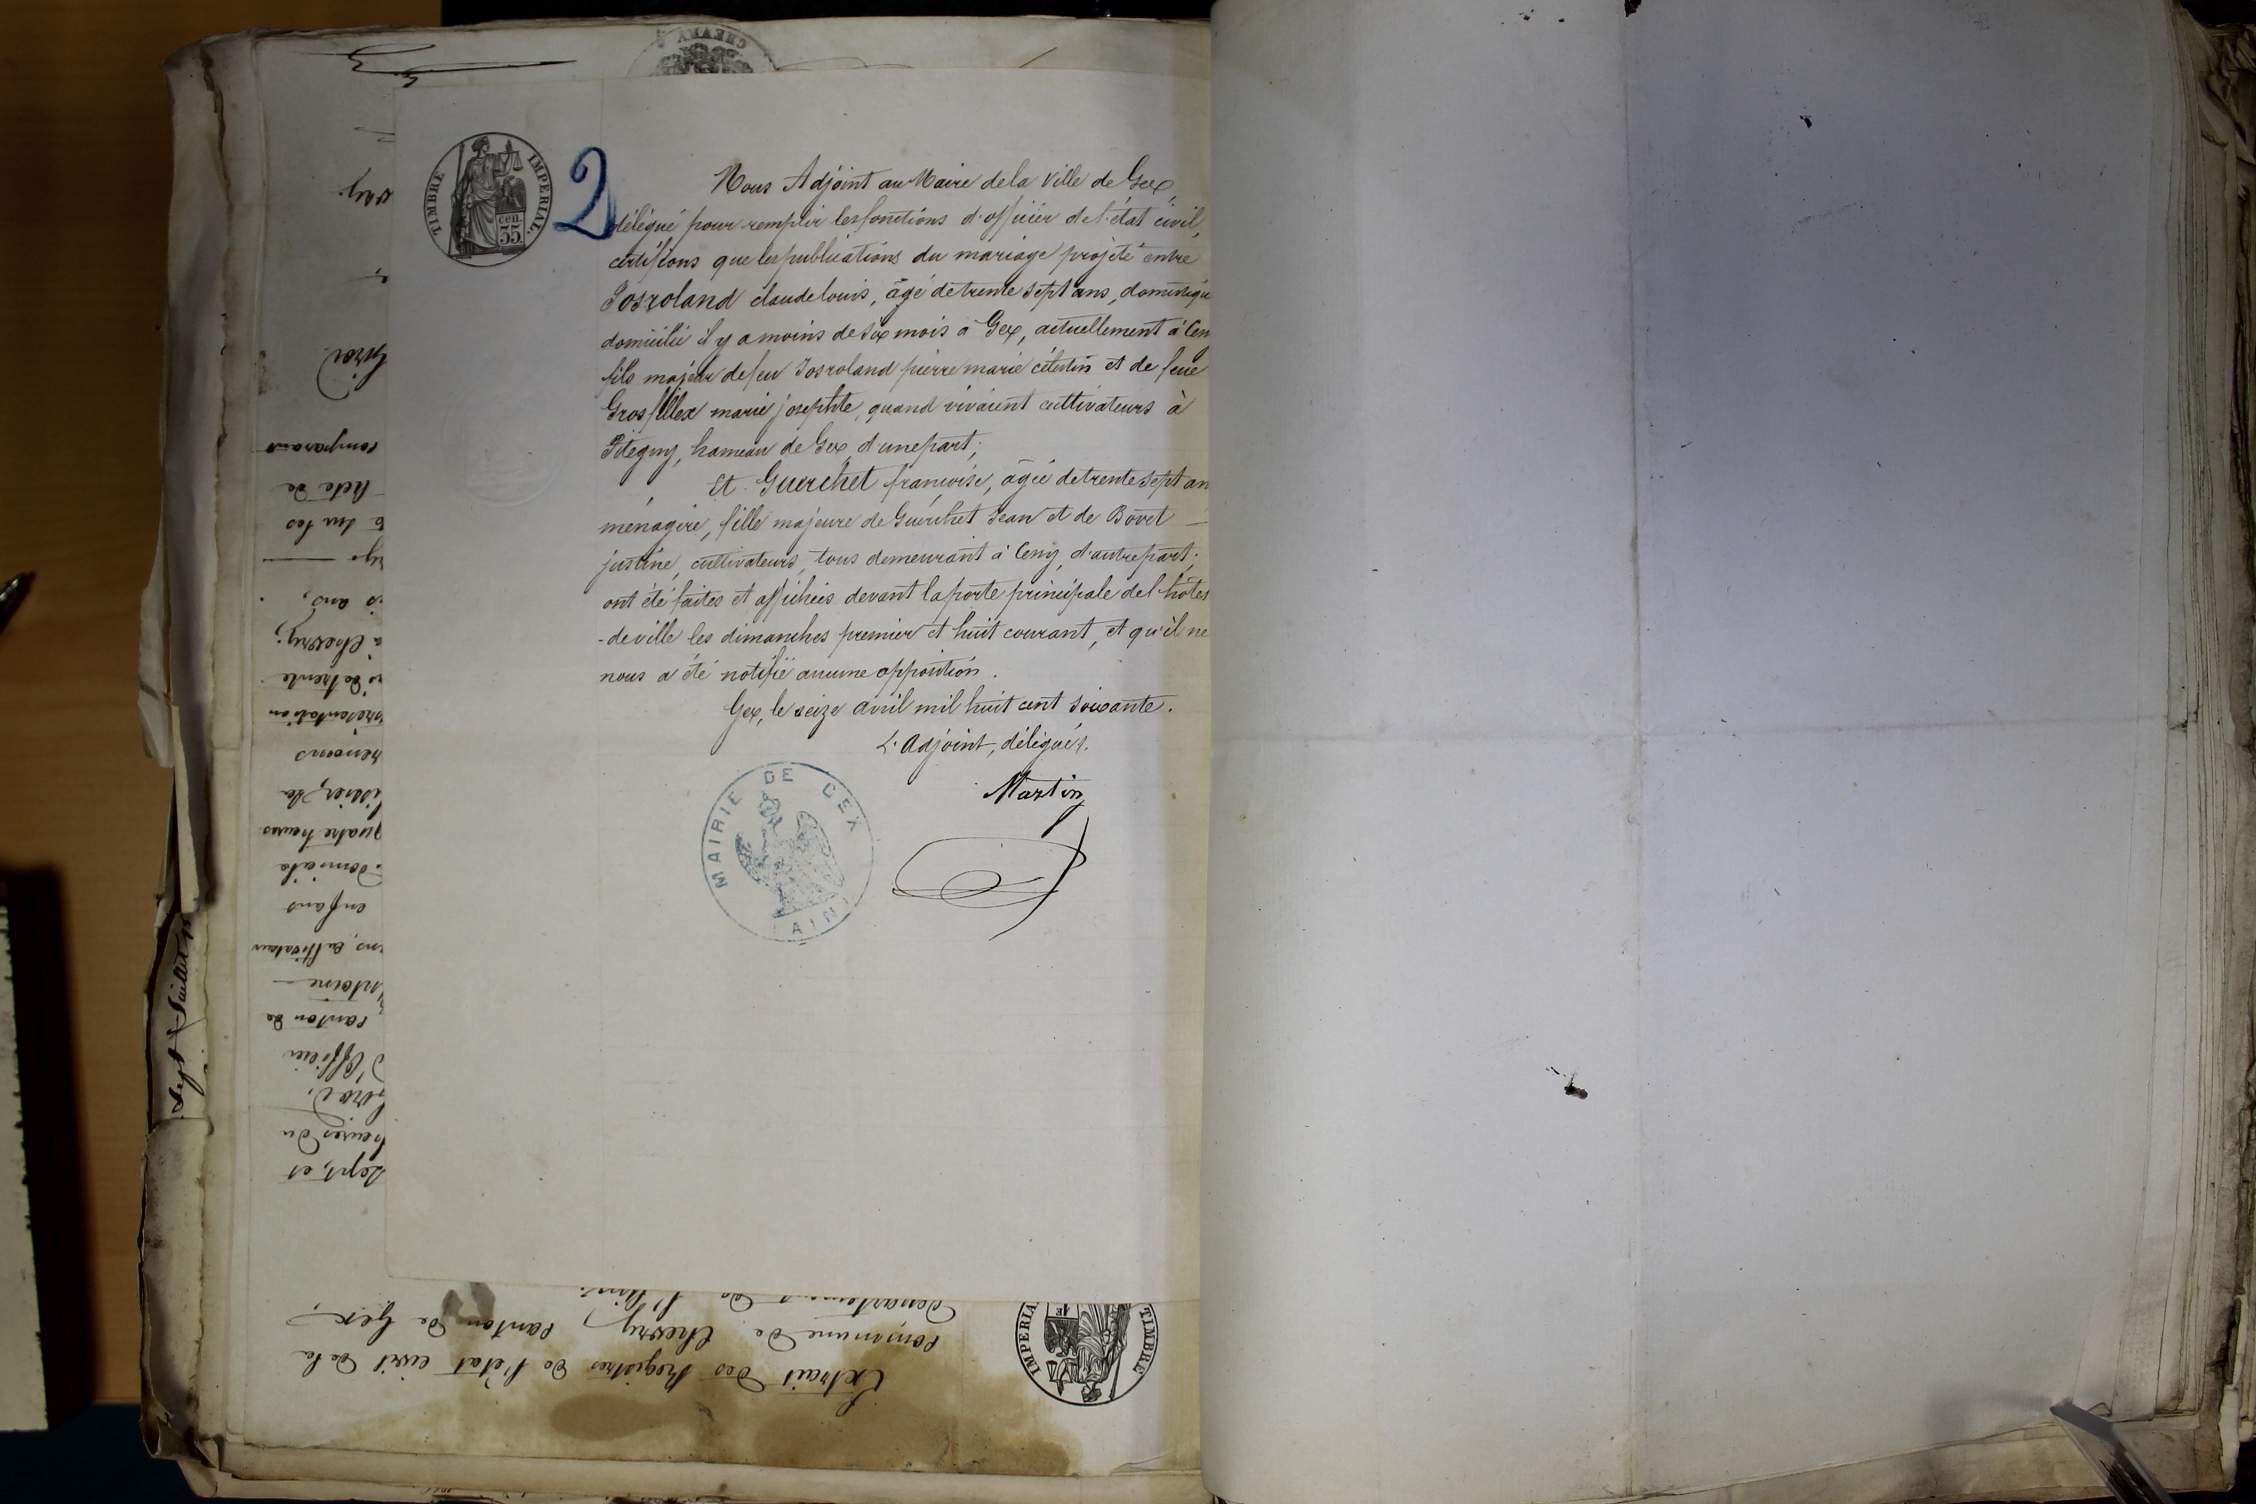 TIMBRE IMPERIAL.
cen. 35
2
Nous Adjoint au Maire de la Ville de Gex,
délégué pour remplir les fonctions d'officier de l'état civil,
certifions que les publications du mariage projeté entre
Josroland claude louis, âgé de trente sept ans, domestique
domicilié il y a moins de six mois à Gex, actuellement à
fils majeur de feu Josroland pierre marie célestin et de feue
Grosfillex marie josephte, quand vivaient cultivateurs à
Pitegny, hameau de Gex, d'une part;
Et Guerchet françoise, âgée de trente sept an
ménagère, fille majeure de Guerchet Jean et de Bovet
justine, cultivateurs, tous demeurant à Cessy, d'autre part;
ont été faites et affichées devant la porte principale de l'hôtel
-de ville les dimanches premier et huit courant, et qu'il ne
nous a été notifié aucune opposition.
Gex, le seize avril mil huit cent soixante.
L'Adjoint, délégué.
Martin
MAIRIE DE GEX
AIN
comparans
Acte de
sur les
ans,
à Chevry;
de trente
présentation
témoins
quatre heures
domicile
enfant
cultivateur
Antoine
canton de
d'Officier
heures du
sept, et
Extrait des Registres de l'état civil de la
commune de Chevry, canton de Gex,
département de l'Ain.
TIMBRE IMPERIAL
CHEVRY
Sept Juillet